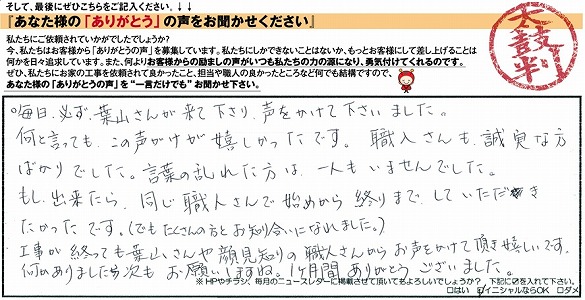 そして、最後にぜひこちらをご記入ください。↓↓
『あなた様の「ありがとう」の声をお聞かせください』
私たちにご依頼されていかがでしたでしょうか?
今、私たちはお客様から「ありがとうの声」を募集しています。私たちにしかできないことはないか、もっとお客様にして差し上げることは
何かを日々追求しています。また、何よりお客様からの励ましの声がいつも私たちの力の源になり、勇気付けてくれるのです。
ぜひ、私たちにお家の工事を依頼されて良かったこと、担当や職人の良かったところなど何でも結構ですので、
あなた様の「ありがとうの声」を“一言だけでも”お聞かせ下さい。
太鼓判
○毎日、必ず、葉山さんが来て下さり、声をかけて下さいました。
何と言っても、この声がけが嬉しかったです。職人さんも、誠実な方
ばかりでした。言葉の乱れた方は、一人もいませんでした。
もし、出来たら、同じ職人さんで始めから終りまで、していただき
たかったです。(でもたくさんの方とお知り合いになれました。)
工事が終っても葉山さんや顔見知りの職人さんからお声をかけて頂き嬉しいです。
何かありました次もお願いしますね。1ヶ月間ありがとうございました。
※HPやチラシ、毎月のニュースレターに掲載させて頂いてもよろしいでしょうか? 下記に☑を入れて下さい。
□はい ☑イニシャルならOK □ダメ